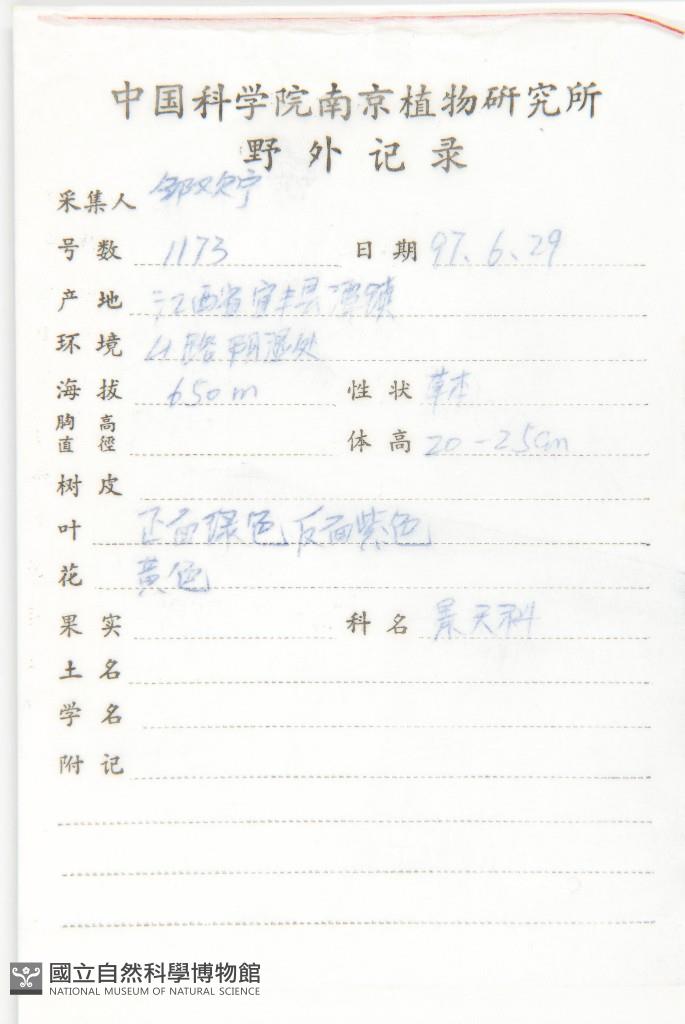 中国科学院南京植物研究所
野外记录
采集人
号数 1173 日期 97.6.29
产地 江西省宜丰县潭镇
环境 山路阴湿处
海拔 650m 性状 草本
胸高直徑 体高 20-25cm
树皮
叶 正面绿色,反面紫色
花 黄色
果实 科名 景天科
土名
学名
附记
國立自然科學博物館
NATIONAL MUSEUM OF NATURAL SCIENCE